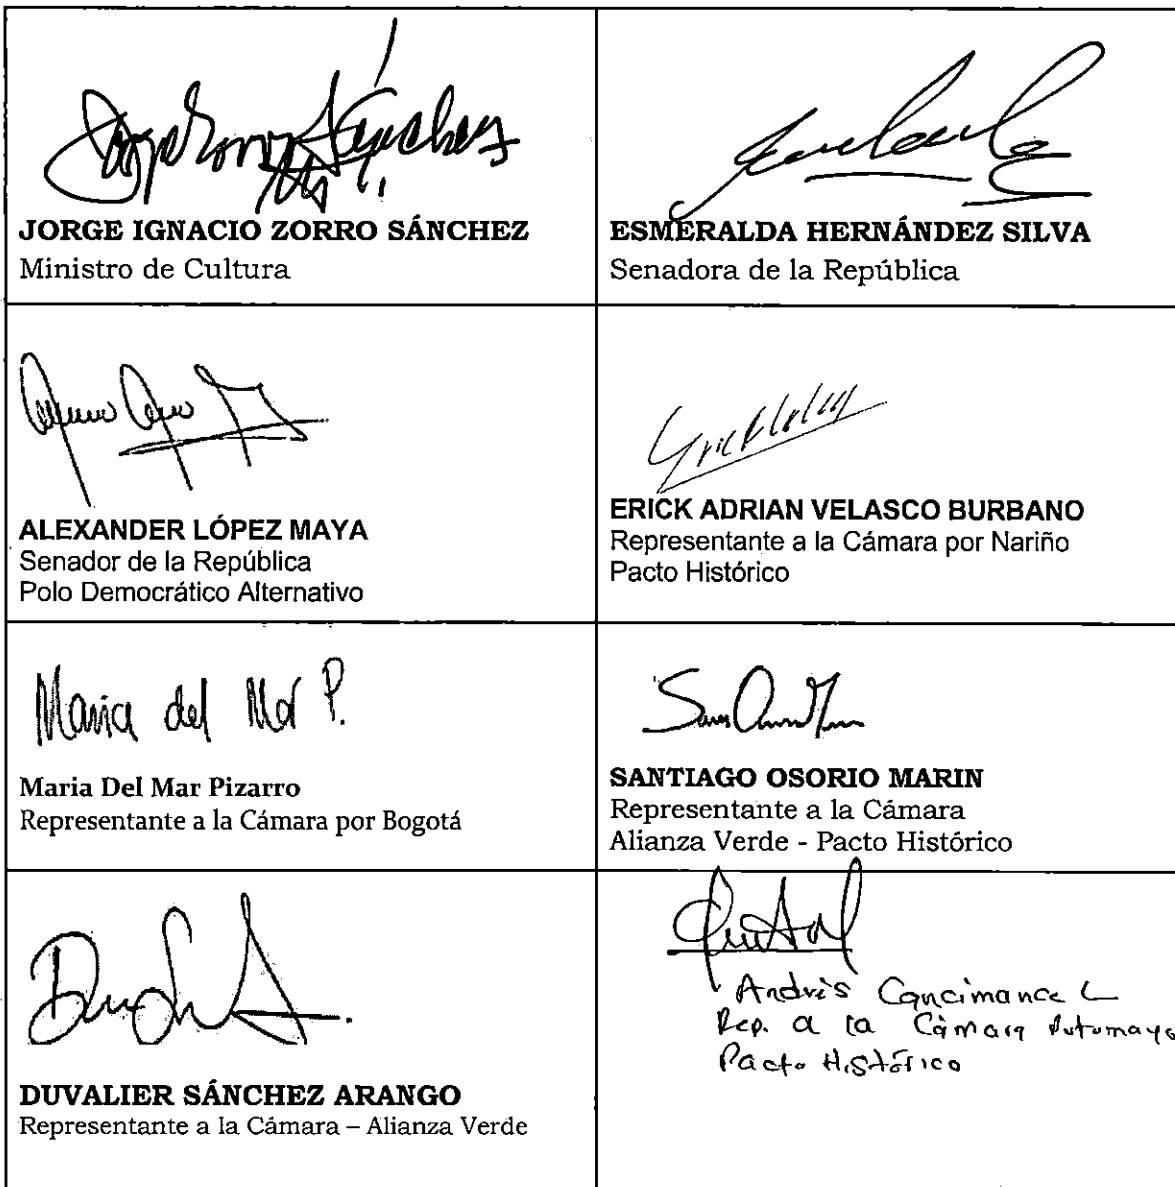 JORGE IGNACIO ZORRO SÁNCHEZ
Ministro de Cultura
ESMERALDA HERNÁNDEZ SILVA
Senadora de la República
ALEXANDER LÓPEZ MAYA
Senador de la República
Polo Democrático Alternativo
ERICK ADRIAN VELASCO BURBANO
Representante a la Cámara por Nariño
Pacto Histórico
Maria del Mar P.
Maria Del Mar Pizarro
Representante a la Cámara por Bogotá
SANTIAGO OSORIO MARIN
Representante a la Cámara
Alianza Verde - Pacto Histórico
DUVALIER SÁNCHEZ ARANGO
Representante a la Cámara – Alianza Verde
Andrés Cancimance L
Rep. a la Cámara Putumayo
Pacto Histórico